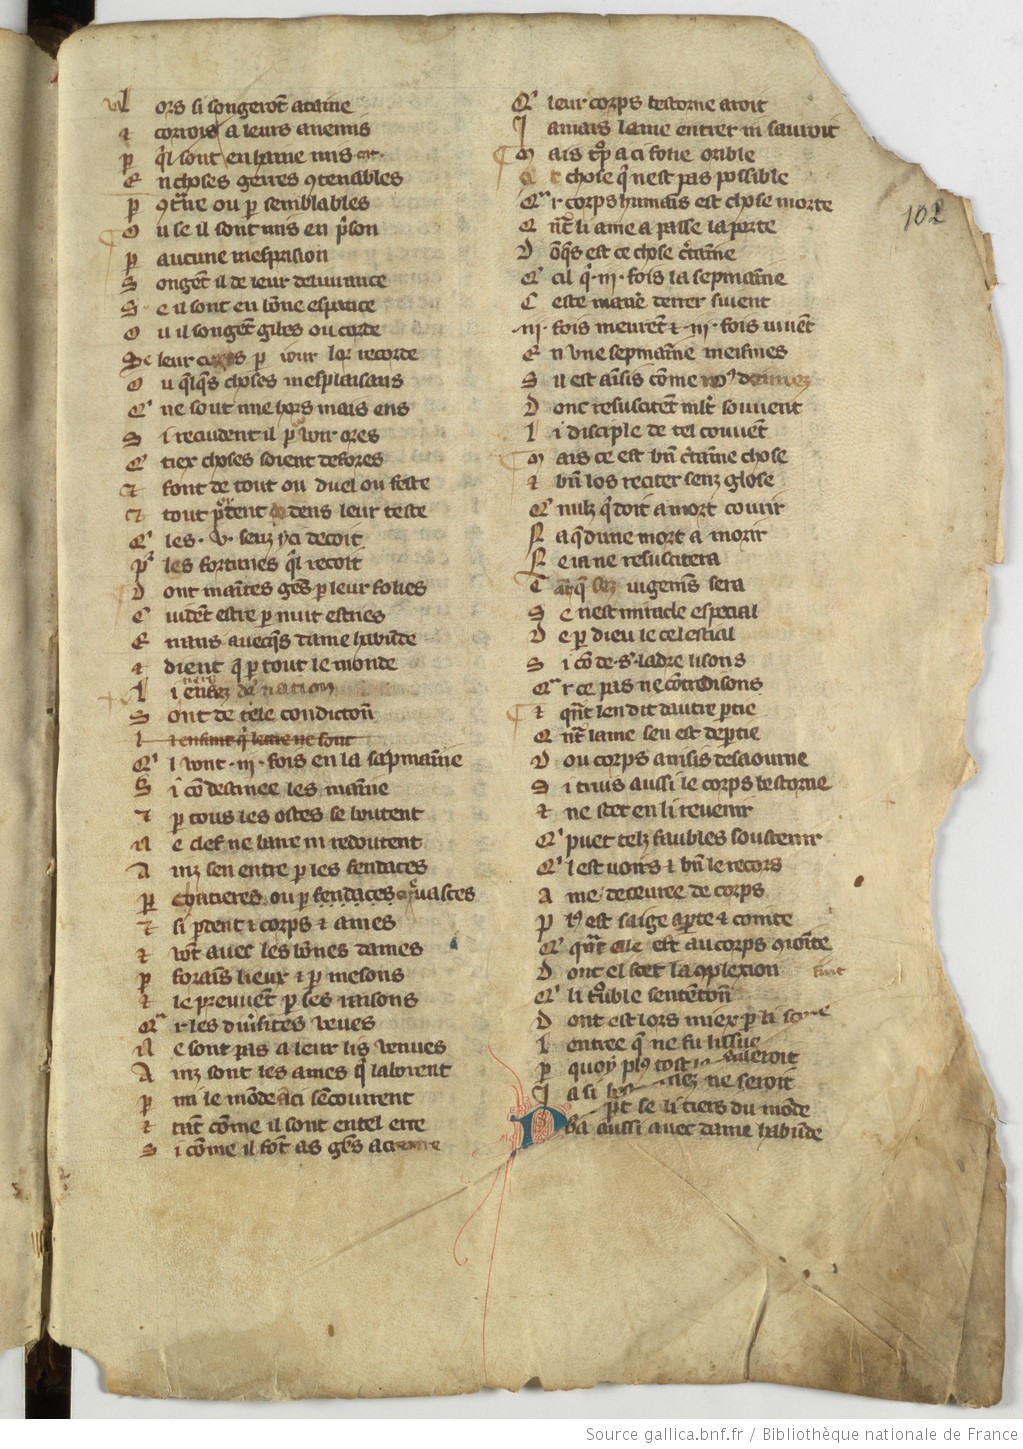 102
l ors si songeront ataine
⁊ corrois a leurs anemis
p q̄l sont en haine mis
E n choses genres 9tenables
p 9t̄ire ou p semblables
O u se il sont mis en p̄son
p aucune mesprision
S ongēt il de leur deliurance
S e il sont en bōne esperāce
O u il songēt gibes ou corde
Se leur p iour lor recorde
O u q̄lq̄s choses mesplaisans
Q' ne sont mie hors mais ens
S i recuident il p voir ores
Q' tiex choses soient defores
⁊ font de tout ou duel ou feste
⁊ tout portent dedens leur teste
Q' les .v. senz yci decoit
p' les fortunes q̄l recoit
D ont maītes gēs p leur folies
C uidēt estre p nuit estries
E rrans auecq̄s dame habūde
⁊ dient q̄ p tout le monde
l i enfez nation
S ont de tele condiciōn
l i enfant q̄ leure ne sont
Q' l vont .iij. fois en la sapmaīne
S i cō destinee les maīne
⁊ p tous les ostes se boutent
N e clef ne bare ni redoutent
A inz sen entre p les fendaces
p chatieres ou p fendaces creuaces
⁊ si p̄dent ⁊ corps ⁊ ames
⁊ vōt avec les bōnes dames
p forains lieux ⁊ p mesons
⁊ le preuuēt p ses raisons
Q r les diu̇sites veues
N e sont pas a leur lis venues
A inz sont les ames q̄ laborent
p mi le mōde aci sēcourrent
⁊ tāt cōme il sont en tel erre
S i cōme il fōt as gēs acreire
Q' leur corps bestorne aroit
J amais lame entrer ni sauroit
M ais tp̄ a ci folie orible
⁊ chose q̄ nest pas possible
Q r corps humaīs est chose morte
Q n̄t li ame a passe la porte
D ōq̄s est ce chose c̄taīne
Q' cil q̄ .iij. fois la sepmaīne
C este maniē derrer siuent
.iij. fois meurēt ⁊ .iij. fois viuēt
E n vne sepmaīne meismes
S il est aīsis cōme
D onc resuscitēt ml̄t souuent
l i disciple de tel couuēt
M ais ce est bn̄ c̄taīne chose
⁊ bn̄ los reciter senz glose
Q' nulz q̄ doit a mort courir
N a q̄ dune mort a morir
N e ia ne resuscitera
T ant q̄ sez iugemēs sera
S e nest miracle especial
D e p dieu le celestial
S i cō de .s. ladre lisons
Q r ce pas ne cōtredisons
⁊ qn̄t len dit dautre ptie
Q n̄t lame sen est deptie
D ou corps ainsis desaourne
S i truis aussi le corps bestorne
⁊ ne scet en li reuenir
Q' puet telz faubles soustenir
Q' l est voirs ⁊ bn̄ le recors
A me deceuree de corps
P l9 est saige ap̄te ⁊ cointe
Q' quāt elle est au corps iōinte
D ont el scet la 9plexion
Q' li trouble sentenciōn
D ont est lors miex p li scene
l entree q̄ ne fu lissue
p quoy pl9 tost la treuueroit
J a si bestornez ne seroit
D p̄t se li tiers du mōde
va aussi auec dame habūde